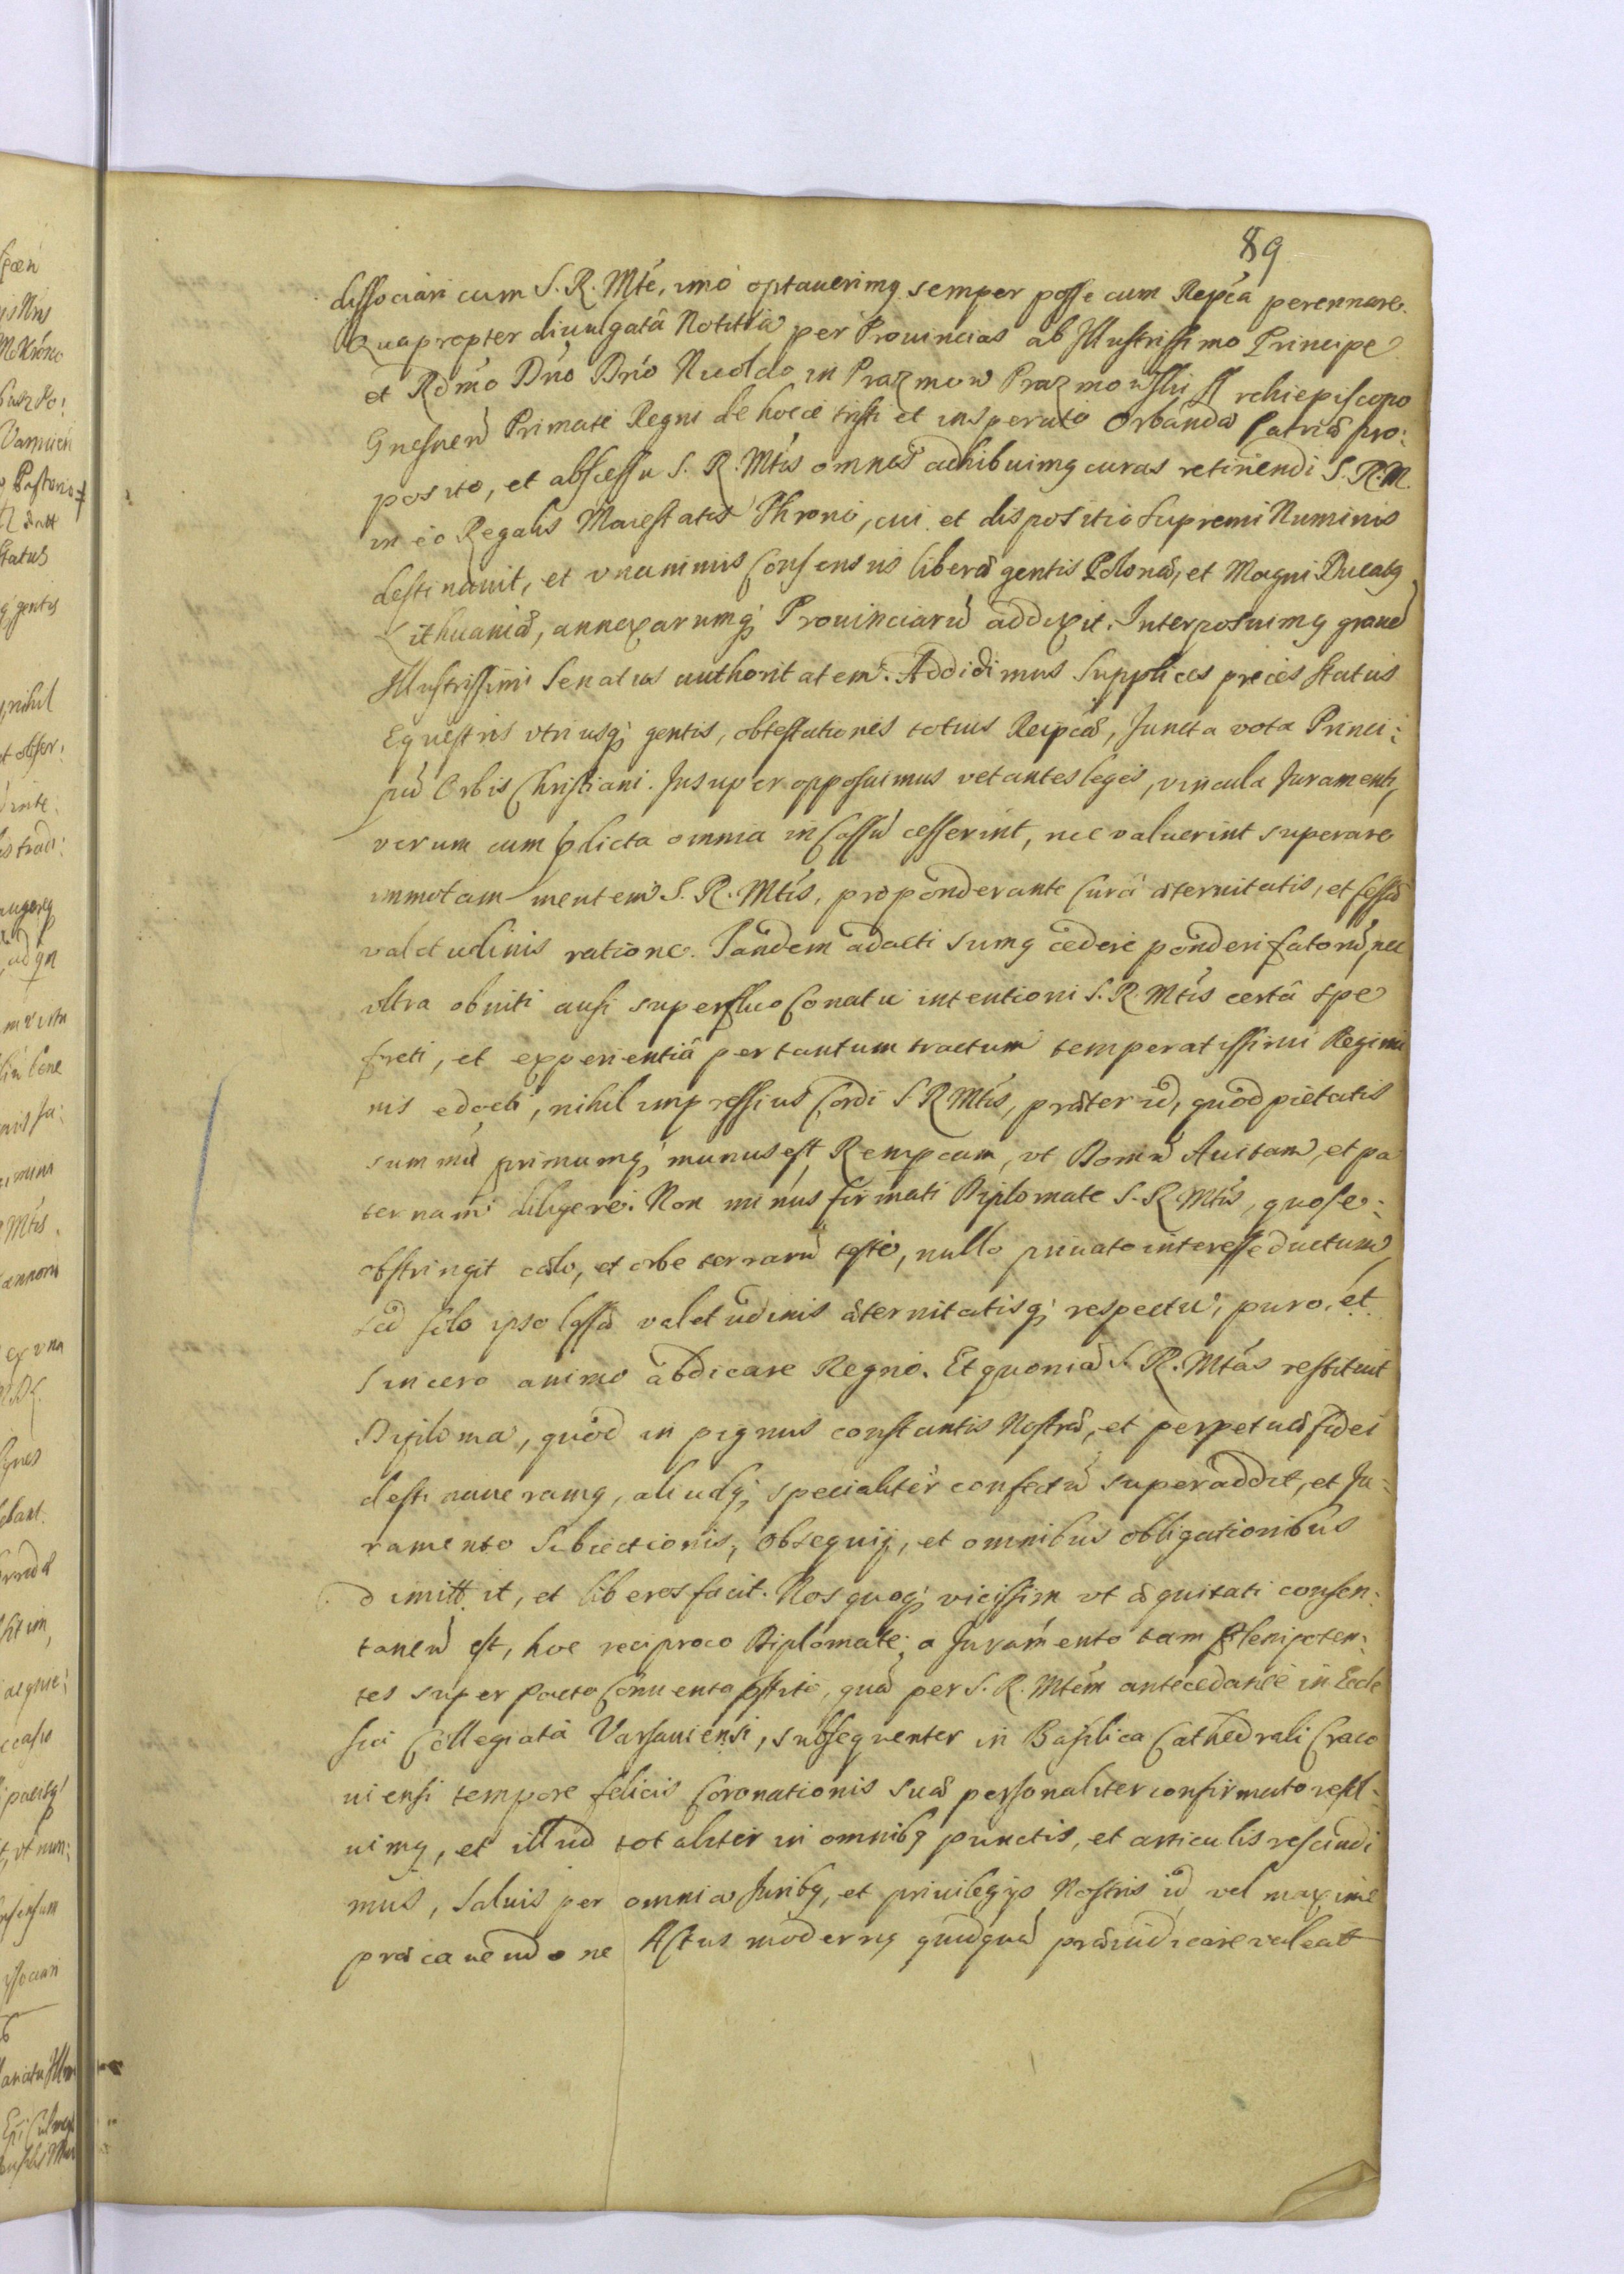 89
dissociari cum S. R. Mte, imò optauerimq semper posse cum Repca perennare.
Quapropter diuulgatâ Notitia per Prouincias ab Illustrissimo Principe
et Rdmo Dno Dno Nicolao in Prazmow Prazmowski Archiepiscopo
Gnesnen Primate Regni de hocce tristi et insperato Orbandæ Patriæ pro:
posito, et abscessu S. R. Mtis omnes adhibuimq curas retinendi S. R. M.
in eo Regalis Maiestatis Throno, cui et dispositio Supremi Numinis
destinauit, et vnanimis Consensus liberæ gentis Polonæ, et Magni Ducatq
Lithuaniæ, annexarumq; Prouinciarũ addixit. Interposuimq grauẽ
Illustrissimi Senatus authoritatem. Addidimus Supplices preces status
Equestris vtriusq; gentis, obtestationes totius Reipcæ, Juncta vota Princi:
pũ Orbis Christiani. Insuper opposuimus vetantes leges, vincula Juramenti,
verum cum pdicta omnia in Cassũ cesserint, nec valuerint superare
immotam mentem S. R. Mtis, proponderante Curâ æternitatis, et fessæ
valetudinis ratione. Tandem adacti sumq cedere ponderi fatorũ, nec
vltra obniti ausi superfluo Conatu intentioni S. R. Mtis certâ spe
freti, et experientiâ per tantum tractum temperatissimi Regimi
nis edocti, nihil impressius Cordi S R Mtis, præter id, quod pietatis
summũ primumq; munus est Rempcam, vt Domũ Auitam, et pa
ternam diligere. Non minus firmati Diplomate S. R Mtis, quo se:
obstringit cælo, et orbe terrarũ teste, nullo priuato interesse ductum,
sed solo ipso læsæ valetudinis æternitatisq; respectu, puro, et
sincero animo abdicare Regno. Et quoniã S. R. Mtas restituit
Diploma, quod in pignus constantis Nostræ, et perpetuæ fidei
destinaueramq, aliudq; specialiter confectũ superaddit, et Ju:
ramento Subiectionis, Obsequij, et omnibus obligationibus
dimittit, et liberos facit. Nos quoq; vicissim vt æquitati consen:
taneũ est, hoc reciproco Diplomate; a Juramento tam Plenipoten:
tes super Pacta Conuenta pstito, quã per S. R. Mtem antecedantè in Eccle
sia Collegiata Varsauiensi, subsequenter in Basilica Cathedrali Craco
uiensi tempore felicis Coronationis Suæ personaliter confirmato resol:
uimq, et illud totaliter in omnibq punctis, et articulis rescindi
mus, Saluis per omnia Juribq, et priuilegijs Nostris id vel maxime
præcauendo ne Actus modernq quidquã præiudicare valeat